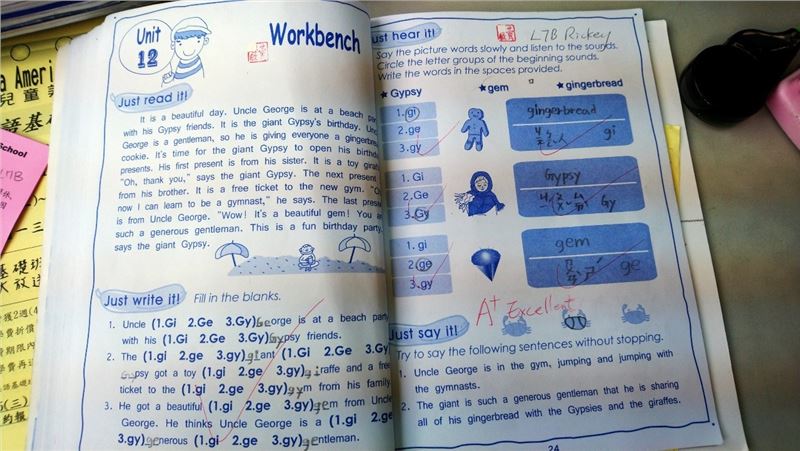 Unit
12
Workbench
Just read it!
It is a beautiful day. Uncle George is at a beach par
with his Gypsy friends. It is the giant Gypsy's birthday. Unc
George is a gentleman, so he is giving everyone a gingerbre
cookie. It's time for the giant Gypsy to open his birthda
presents. His first present is from his sister. It is a toy giraffe
"Oh, thank you," says the giant Gypsy. The next present
from his brother. It is a free ticket to the new gym. "O
now I can learn to be a gymnast," he says. The last prese
is from Uncle George. "Wow! It's a beautiful gem! You are
such a generous gentleman. This is a fun birthday party,
says the giant Gypsy.
Just write it! Fill in the blanks.
1. Uncle (1.Gi 2.Ge 3.Gy)George is at a beach party
with his (1.Gi 2.Ge 3.Gy)Gypsy friends.
2. The (1.gi 2.ge 3.gy)giant (1.Gi 2.Ge 3.Gy)
Gypsy got a toy (1.gi 2.ge 3.gy)giraffe and a free
ticket to the (1.gi 2.ge 3.gy)gym from his family.
3. He got a beautiful (1.gi 2.ge 3.gy)gem from Uncle
George. He thinks Uncle George is a (1.gi 2.ge
3.gy)generous (1.gi 2.ge 3.gy)gentleman.
Just hear it!
L7B Rickey
Say the picture words slowly and listen to the sounds.
Circle the letter groups of the beginning sounds.
Write the words in the spaces provided.
★ Gypsy ★ gem ★ gingerbread
1. gi
2. ge
3. gy
gingerbread
gi
1. Gi
2. Ge
3. Gy
Gypsy
Gy
1. gi
2. ge
3. gy
gem
ge
A+ Excellent
Just say it!
Try to say the following sentences without stopping.
1. Uncle George is in the gym, jumping and jumping with
the gymnasts.
2. The giant is such a generous gentleman that he is sharing
all of his gingerbread with the Gypsies and the giraffes.
24
a Ameri
兒童美
語基礎
School
L7B